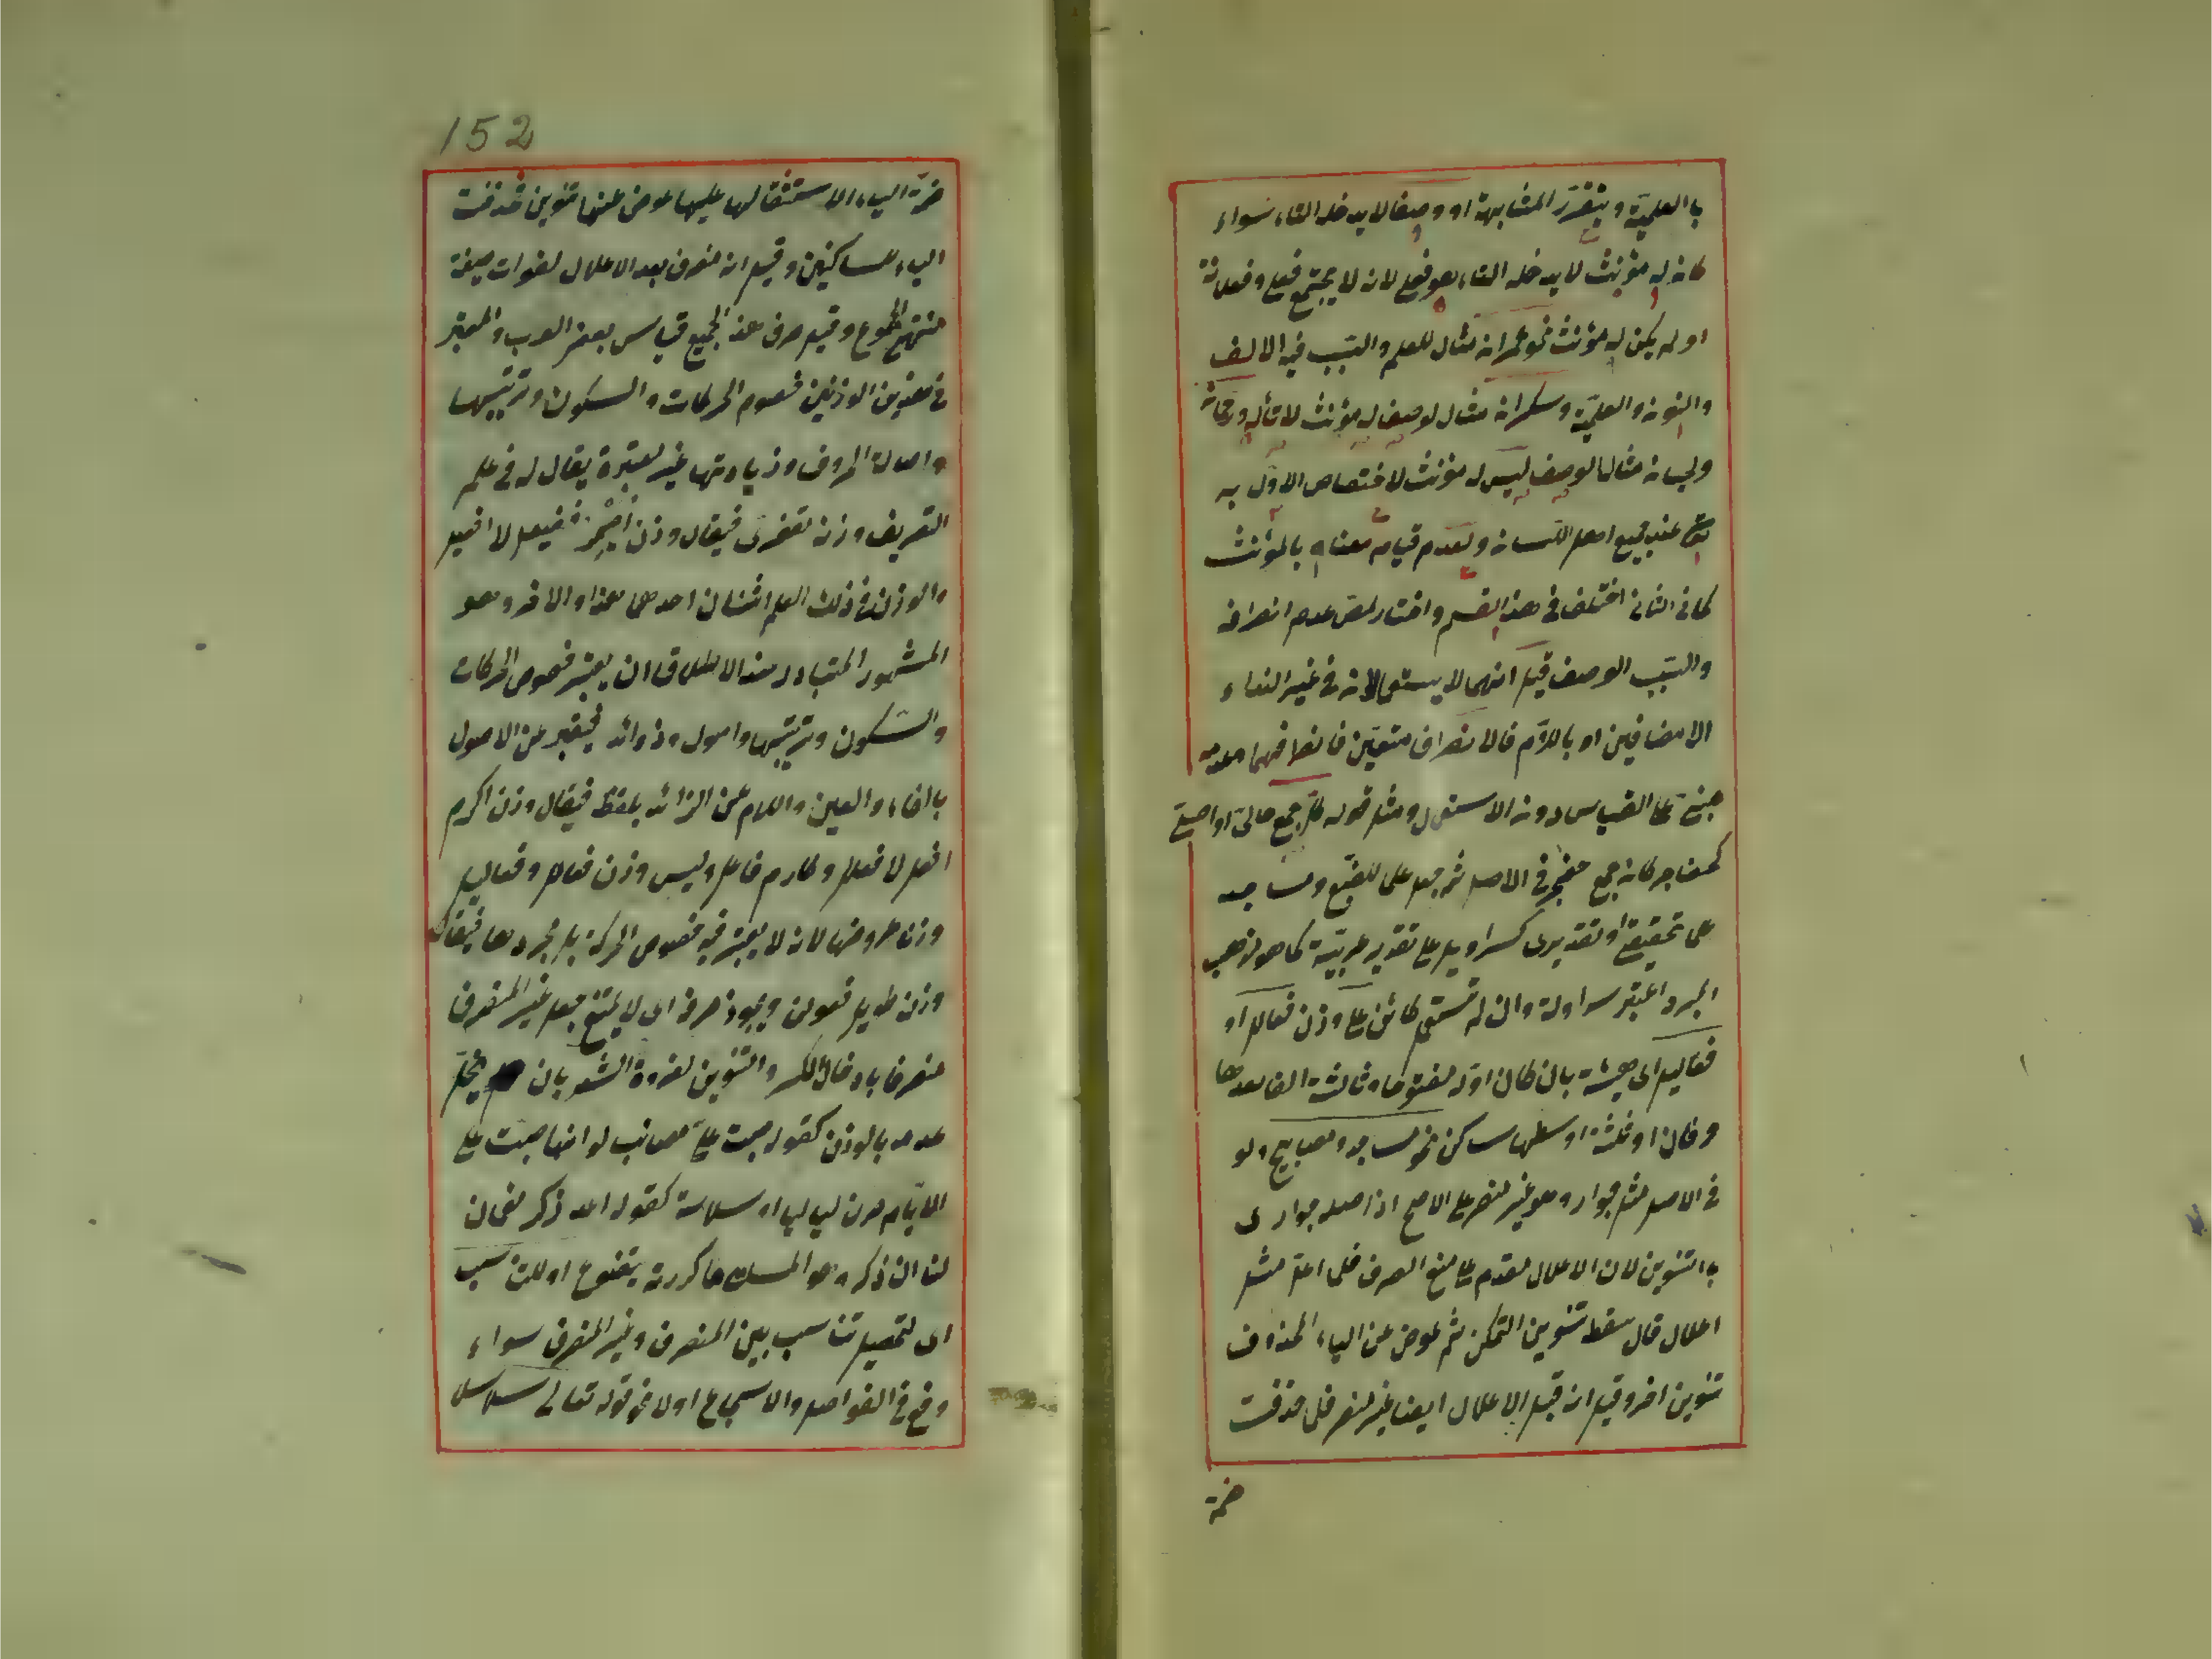 با العلمية ويتقرر المشابهة او وصفا لا يدخله التاء سواء
كان له مؤنث لا يدخله التاء هو فعلى لانه لا يجتمع فعلى وفعلانة
او لم يكن له مؤنث نحو عمران مثال للعلم والسبب فيه الالف
والنون والعلمية وسكران مثال لوصف له مؤنث لا تاء له ورحمان
ولحيان مثالا لوصف ليس له مؤنث لاختصاص الاول به
تعالى عند جميع اهل اللسان وبعدم قيام معناه بالمؤنث
كما فى الثانى اختلف فى هذا القسم واختار المص عدم انصرافه
والسبب الوصف قيل انهما لا يستعملان فى غير النداء
الا مضافين او باللام فالانصراف متعين فانصرافهما وعدمه
مبنى على القياس دون الاستعمال ومثل قوله جمع حالى او اصلى
كحضاجر كان جمع حضجر فى الاصل ثم جعل علما للضبع ومساجد
على تحقيقى او تقديرى كسراويل على تقدير عربية كما هو مذهب
المبرد اعتبر سراولة وان لم تستعمل كائن على وزن فعالل او
فعاليل اى هيئته بان كان اوله مفتوحا وثالثه الفا بعدها
حرفان او ثلثة اوسطها ساكن نحو مساجد ومصابيح ولو
فى الاصل مثل جوار وهو غير منصرف على الاصح اذ اصله جوارى
بالتنوين لان الاعلال مقدم على منع الصرف فلما اعل مثل
اعلال قال سقط تنوين التمكن ثم عوض عن الياء المحذوف
تنوين اخر وقيل انه قبل الاعلال ايضا غير منصرف فلما حذفت
ضمة
152
ضمة الياء الاستثقالها عليها عوض عنها تنوين فحذفت
الياء للساكنين وقيل انه منصرف بعد الاعلال لفوات صيغة
منتهى الجموع وقيل صرف هذا الجمع قياس بعض العرب والمعتبر
فى هذين الوزنين خصوص الحركات والسكون وترتيبها
واصالة الحروف وزيادتها غير معتبرة يقال له فى علم
التصريف وزن تصغرى فيقال وزن فعيعل لا افيعل
والوزن فى ذلك العلم اثنان احدهما هذا والاخر وهو
المشهور المتبادر عند الاطلاق ان يعتبر خصوص الحركات
والسكون وترتيبها واصول وزوائد فيعبر عن الاصول
بالفاء والعين واللام عن الزائد بلفظه فيقال وزن اكرم
افعل لا فعلل وكارم فاعل وليس وزن فعالل وفعاليل
وزن عروضها لانه لا يعتبر فيه خصوص الحركة بل مجردها فيقال
وزن طويل فعولن ويجوز صرفه اى لا يمتنع جعل غير المنصرف
منصرفا بادخال الكسر والتنوين لضرورة الشعر بان يختل
عدمه بالوزن كقوله صبت على مصائب لو انها صبت على
الايام صرن لياليا او سلاسة كقوله اعد ذكر نعمان
لنا ان ذكره هو المسك ما كررته يتضوع او للتناسب
اى لتحصيل تناسب بين المنصرف وغير المنصرف سواء
وقع فى الفواصل والاسجاع او لا نحو قوله تعالى سلاسل